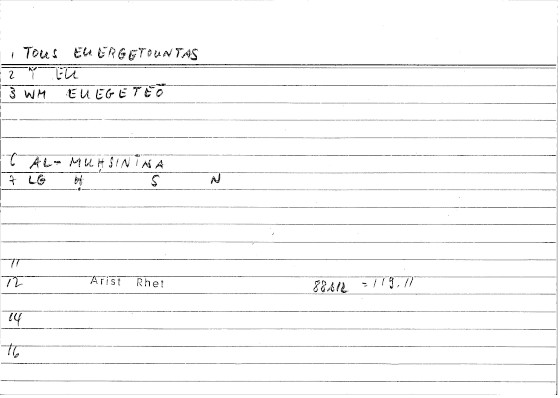 1 TOUS EUERGETOUNTAS
2 T EU
3 WM EUEGETEŌ
6 AL-MUḤSINĪNA
7 LG Ḥ S N
11
12 Arist Rhet = 119.11
14
16